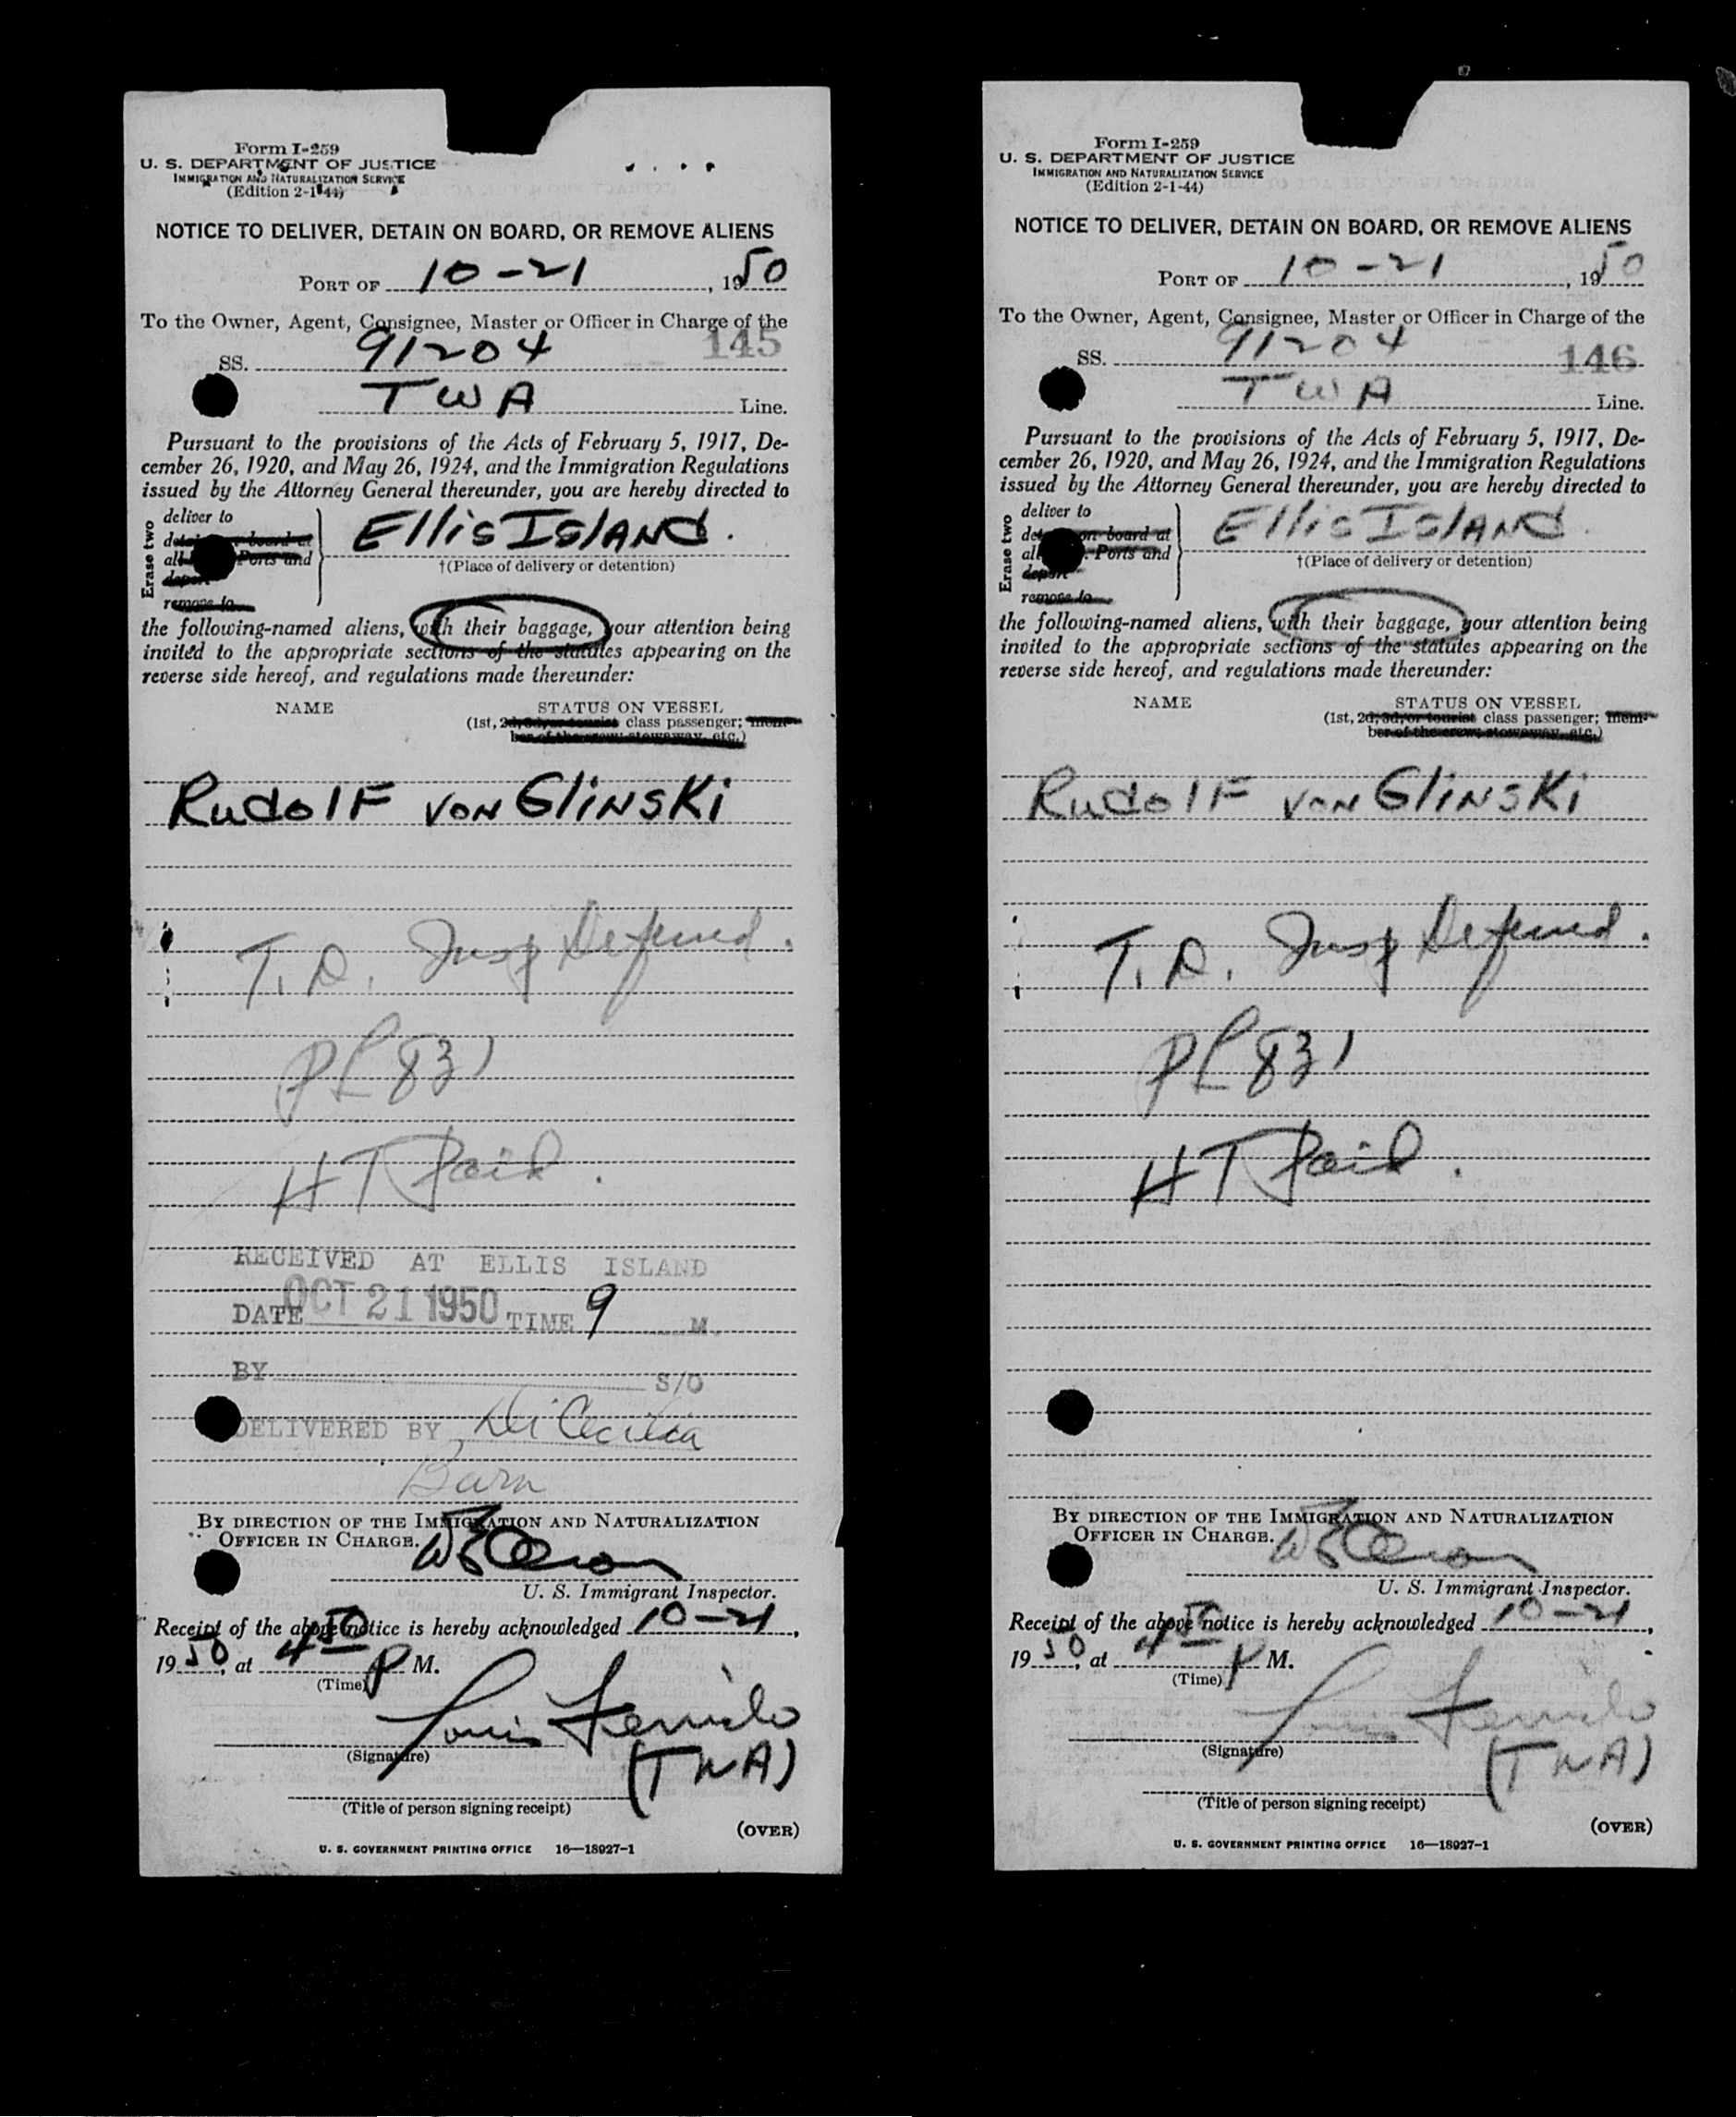 Form I-259
U. S. DEPARTMENT OF JUSTICE
IMMIGRATION AND NATURALIZATION SERVICE
(Edition 2-1-44)
NOTICE TO DELIVER, DETAIN ON BOARD, OR REMOVE ALIENS
PORT OF 10-21, 1950
To the Owner, Agent, Consignee, Master or Officer in Charge of the
SS. 91204 145
TWA Line.
Pursuant to the provisions of the Acts of February 5, 1917, De-
cember 26, 1920, and May 26, 1924, and the Immigration Regulations
issued by the Attorney General thereunder, you are hereby directed to
Erase two
deliver to
on board at
all Ports and
deport
remove to
Ellis Island.
†(Place of delivery or detention)
the following-named aliens, with their baggage, your attention being
invited to the appropriate sections of the statutes appearing on the
reverse side hereof, and regulations made thereunder:
NAME STATUS ON VESSEL
(1st, 2d, 3d, or tourist class passenger; mem-
ber of the crew, stowaway, etc.)
Rudolf von Glinski
T. D. Insp Deferred.
PL 831
HT Paid.
RECEIVED AT ELLIS ISLAND
DATE OCT 21 1950 TIME 9 M.
BY S/O
DELIVERED BY Di Cecilia
BY DIRECTION OF THE IMMIGRATION AND NATURALIZATION
OFFICER IN CHARGE.
U. S. Immigrant Inspector.
Receipt of the above notice is hereby acknowledged 10-21,
1950, at 4 50 P M.
(Time)
Louis
(Signature)
(TWA)
(Title of person signing receipt)
(OVER)
U. S. GOVERNMENT PRINTING OFFICE 16—18927-1
Form I-259
U. S. DEPARTMENT OF JUSTICE
IMMIGRATION AND NATURALIZATION SERVICE
(Edition 2-1-44)
NOTICE TO DELIVER, DETAIN ON BOARD, OR REMOVE ALIENS
PORT OF 10-21, 1950
To the Owner, Agent, Consignee, Master or Officer in Charge of the
SS. 91204 146
TWA Line.
Pursuant to the provisions of the Acts of February 5, 1917, De-
cember 26, 1920, and May 26, 1924, and the Immigration Regulations
issued by the Attorney General thereunder, you are hereby directed to
Erase two
deliver to
on board at
all Ports and
deport
remove to
Ellis Island.
†(Place of delivery or detention)
the following-named aliens, with their baggage, your attention being
invited to the appropriate sections of the statutes appearing on the
reverse side hereof, and regulations made thereunder:
NAME STATUS ON VESSEL
(1st, 2d, 3d, or tourist class passenger; mem-
ber of the crew, stowaway, etc.)
Rudolf von Glinski
T. D. Insp Deferred.
PL 831
HT Paid.
BY DIRECTION OF THE IMMIGRATION AND NATURALIZATION
OFFICER IN CHARGE.
U. S. Immigrant Inspector.
Receipt of the above notice is hereby acknowledged 10-21,
1950, at 4 50 P M.
(Time)
Louis
(Signature)
(TWA)
(Title of person signing receipt)
(OVER)
U. S. GOVERNMENT PRINTING OFFICE 16—18927-1